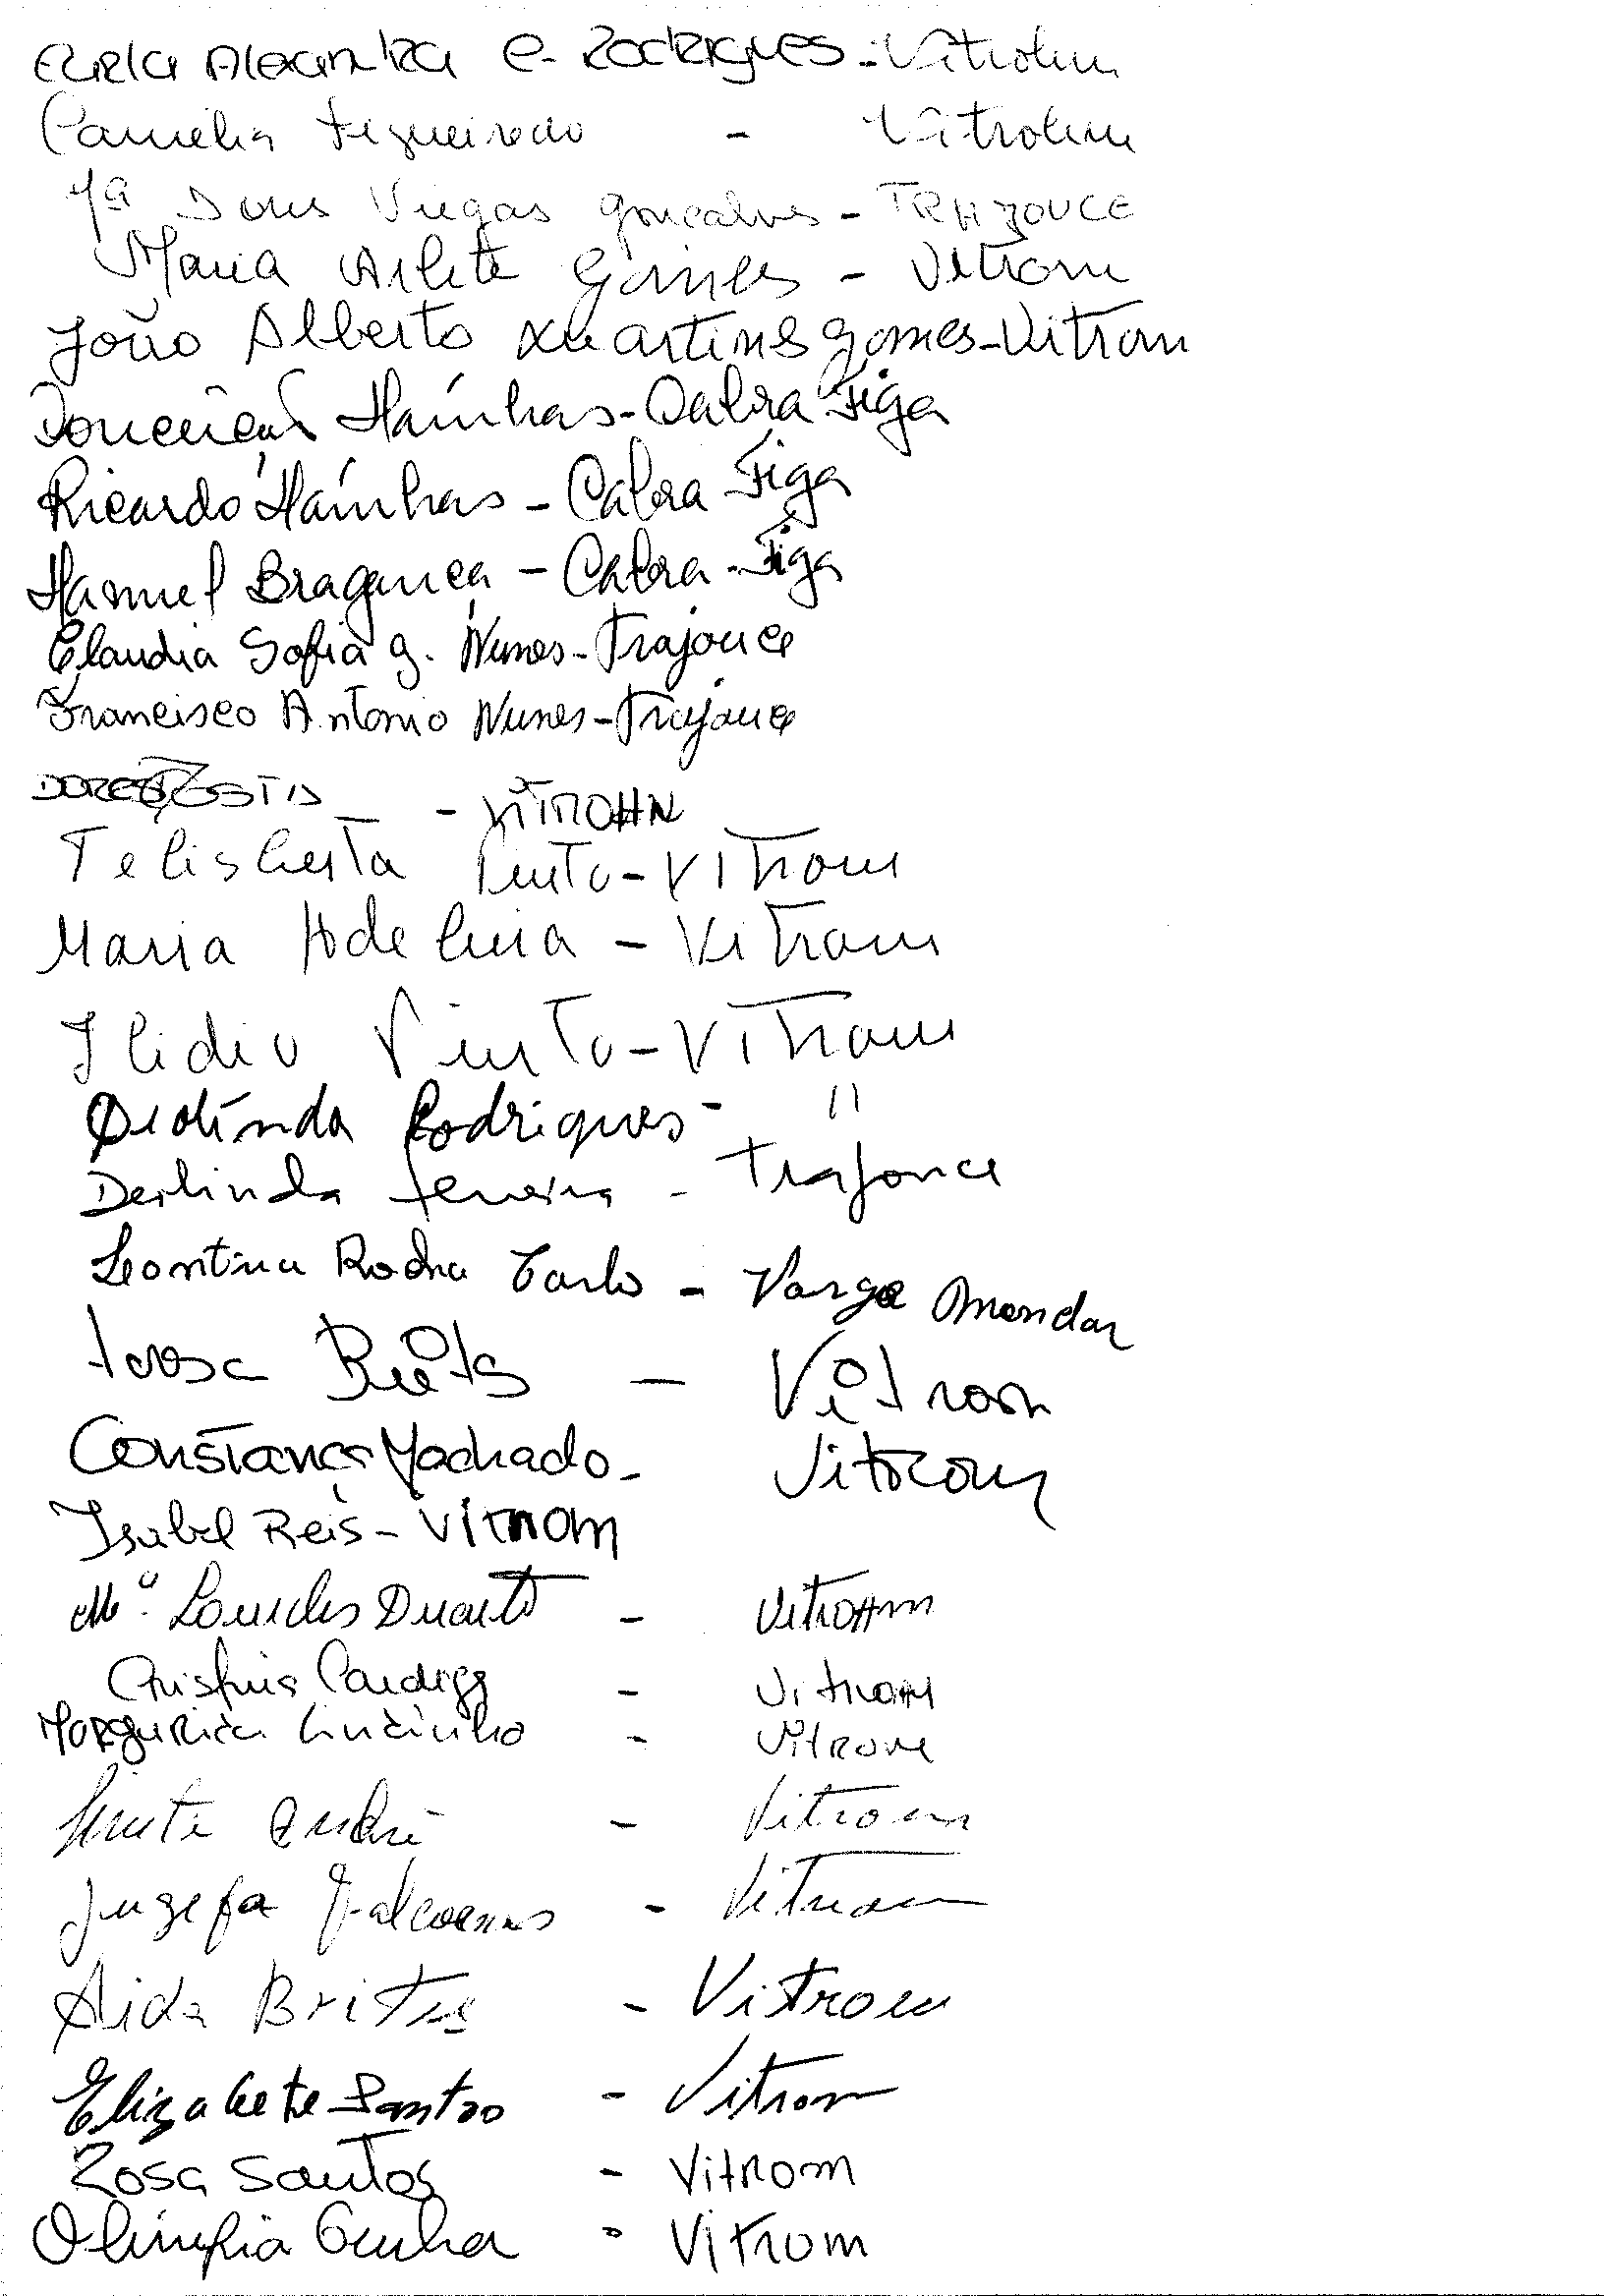 Carla Alexandra C. Rodrigues - Vitrohm
Camélia Figueiredo - Vitrohm
Mª Dores Viegas Gonçalves - TRAJOUCE
Maria Arlete Gomes - Vitrom
João Alberto Martins Gomes - Vitrom
Conceição Mainhas - Cabra Figa
Ricardo Mainhas - Cabra Figa
Manuel Bragança - Cabra-Figa
Claudia Sofia G. Nunes - Trajouce
Francisco António Nunes - Trajouce
- VITROHM
Felisberta Pinto - VITrom
Maria Adelina - Vitrom
Ilidio Pinto - VITrom
Diolinda Rodrigues - "
Derlinda Ferreira - Trajouce
Leontina Rocha - Varge Mondar
- Vitrom
Constança Machado - Vitrom
Isabel Reis - Vitrom
Mª. Lourdes Duarte - Vitrohm
Cardiga - Vitrom
Margarida - Vitrom
- Vitrom
Juzefa - Vitrom
Aida Brites - Vitrom
Elizabete Santos - Vitrom
Rosa Santos - Vitrom
Olimpia Cunha - Vitrom